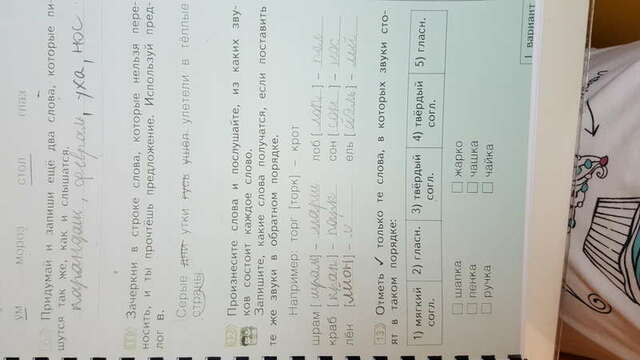 ум мороз стол глаз
Придумай и запиши ещё два слова, которые пи-
шутся так же, как и слышатся.
парандаш, февраль, уха, нос
11 Зачеркни в строке слова, которые нельзя пере-
носить, и ты прочтёшь предложение. Используй пред-
лог в.
Серые дни утки гусь ушёл улетели в тёплые
страны.
12 Произнесите слова и послушайте, из каких зву-
ков состоит каждое слово.
Запишите, какие слова получатся, если поставить
те же звуки в обратном порядке.
Например: торг [торк] – крот
шрам [шрам] – марш лоб [лоп] – пол
краб [крап] – парк сон [сон] – нос
лён [лйон] – ель [йэль] –
13 Отметь ✓ только те слова, в которых звуки сто-
ят в таком порядке:
1) мягкий согл. 2) гласн. 3) твёрдый согл. 4) твёрдый согл. 5) гласн.
шапка жарко
пенка чашка
ручка чайка
1 вариант